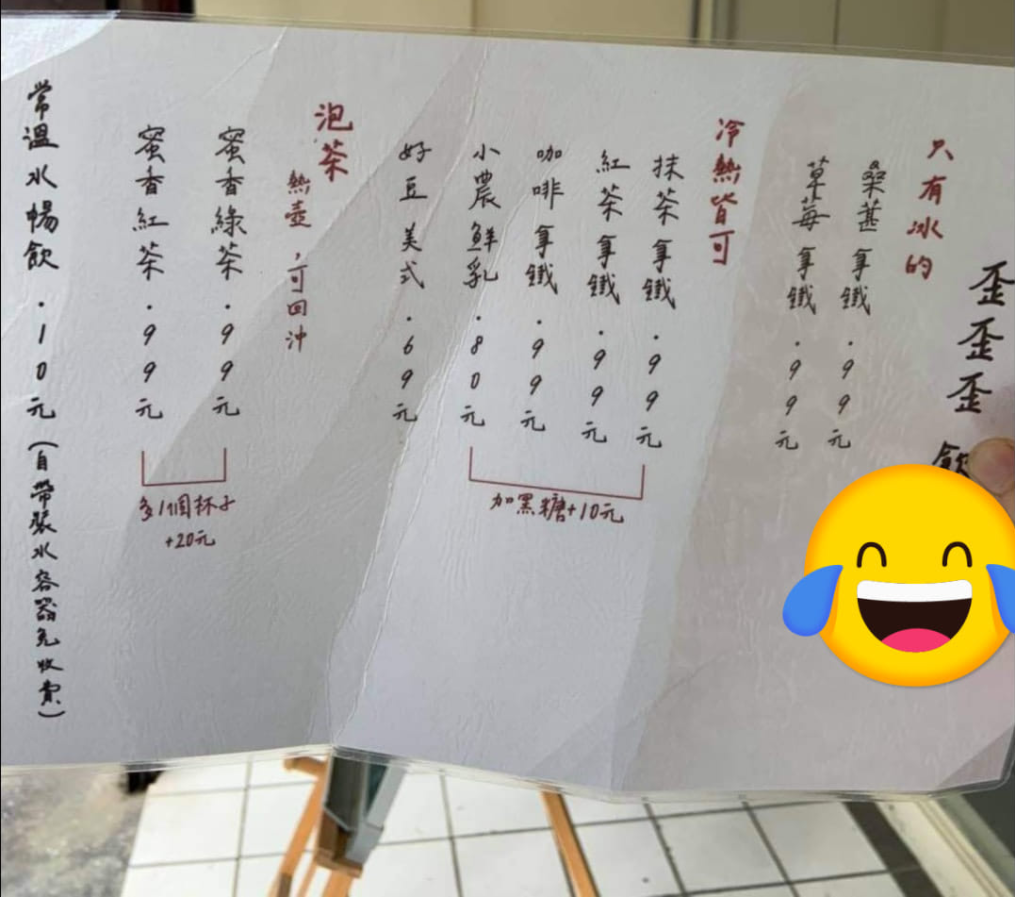 歪歪歪 飲
只有冰的
桑葚拿鐵.99元
草莓拿鐵.99元
冷熱皆可
抹茶拿鐵.99元
紅茶拿鐵.99元
咖啡拿鐵.99元
小農鮮乳.80元
加黑糖+10元
好豆美式.69元
泡茶
熱壺,可回沖
蜜香綠茶.99元
蜜香紅茶.99元
多1個杯子
+20元
常溫水暢飲.10元(自帶裝水容器免收費)